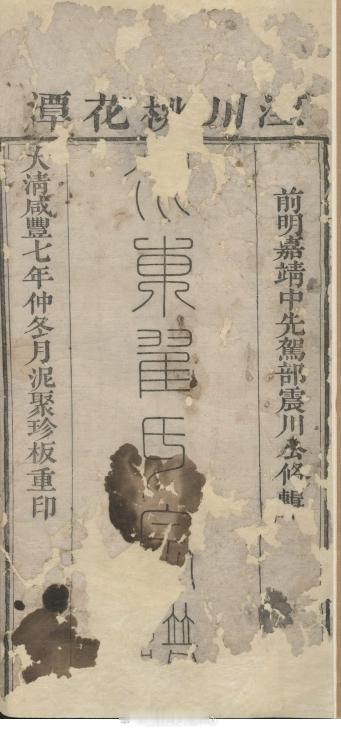 涇川桃花潭
前明嘉靖中先駕部震川公修輯
水東翟氏宗譜
大清咸豐七年仲冬月泥聚珍板重印